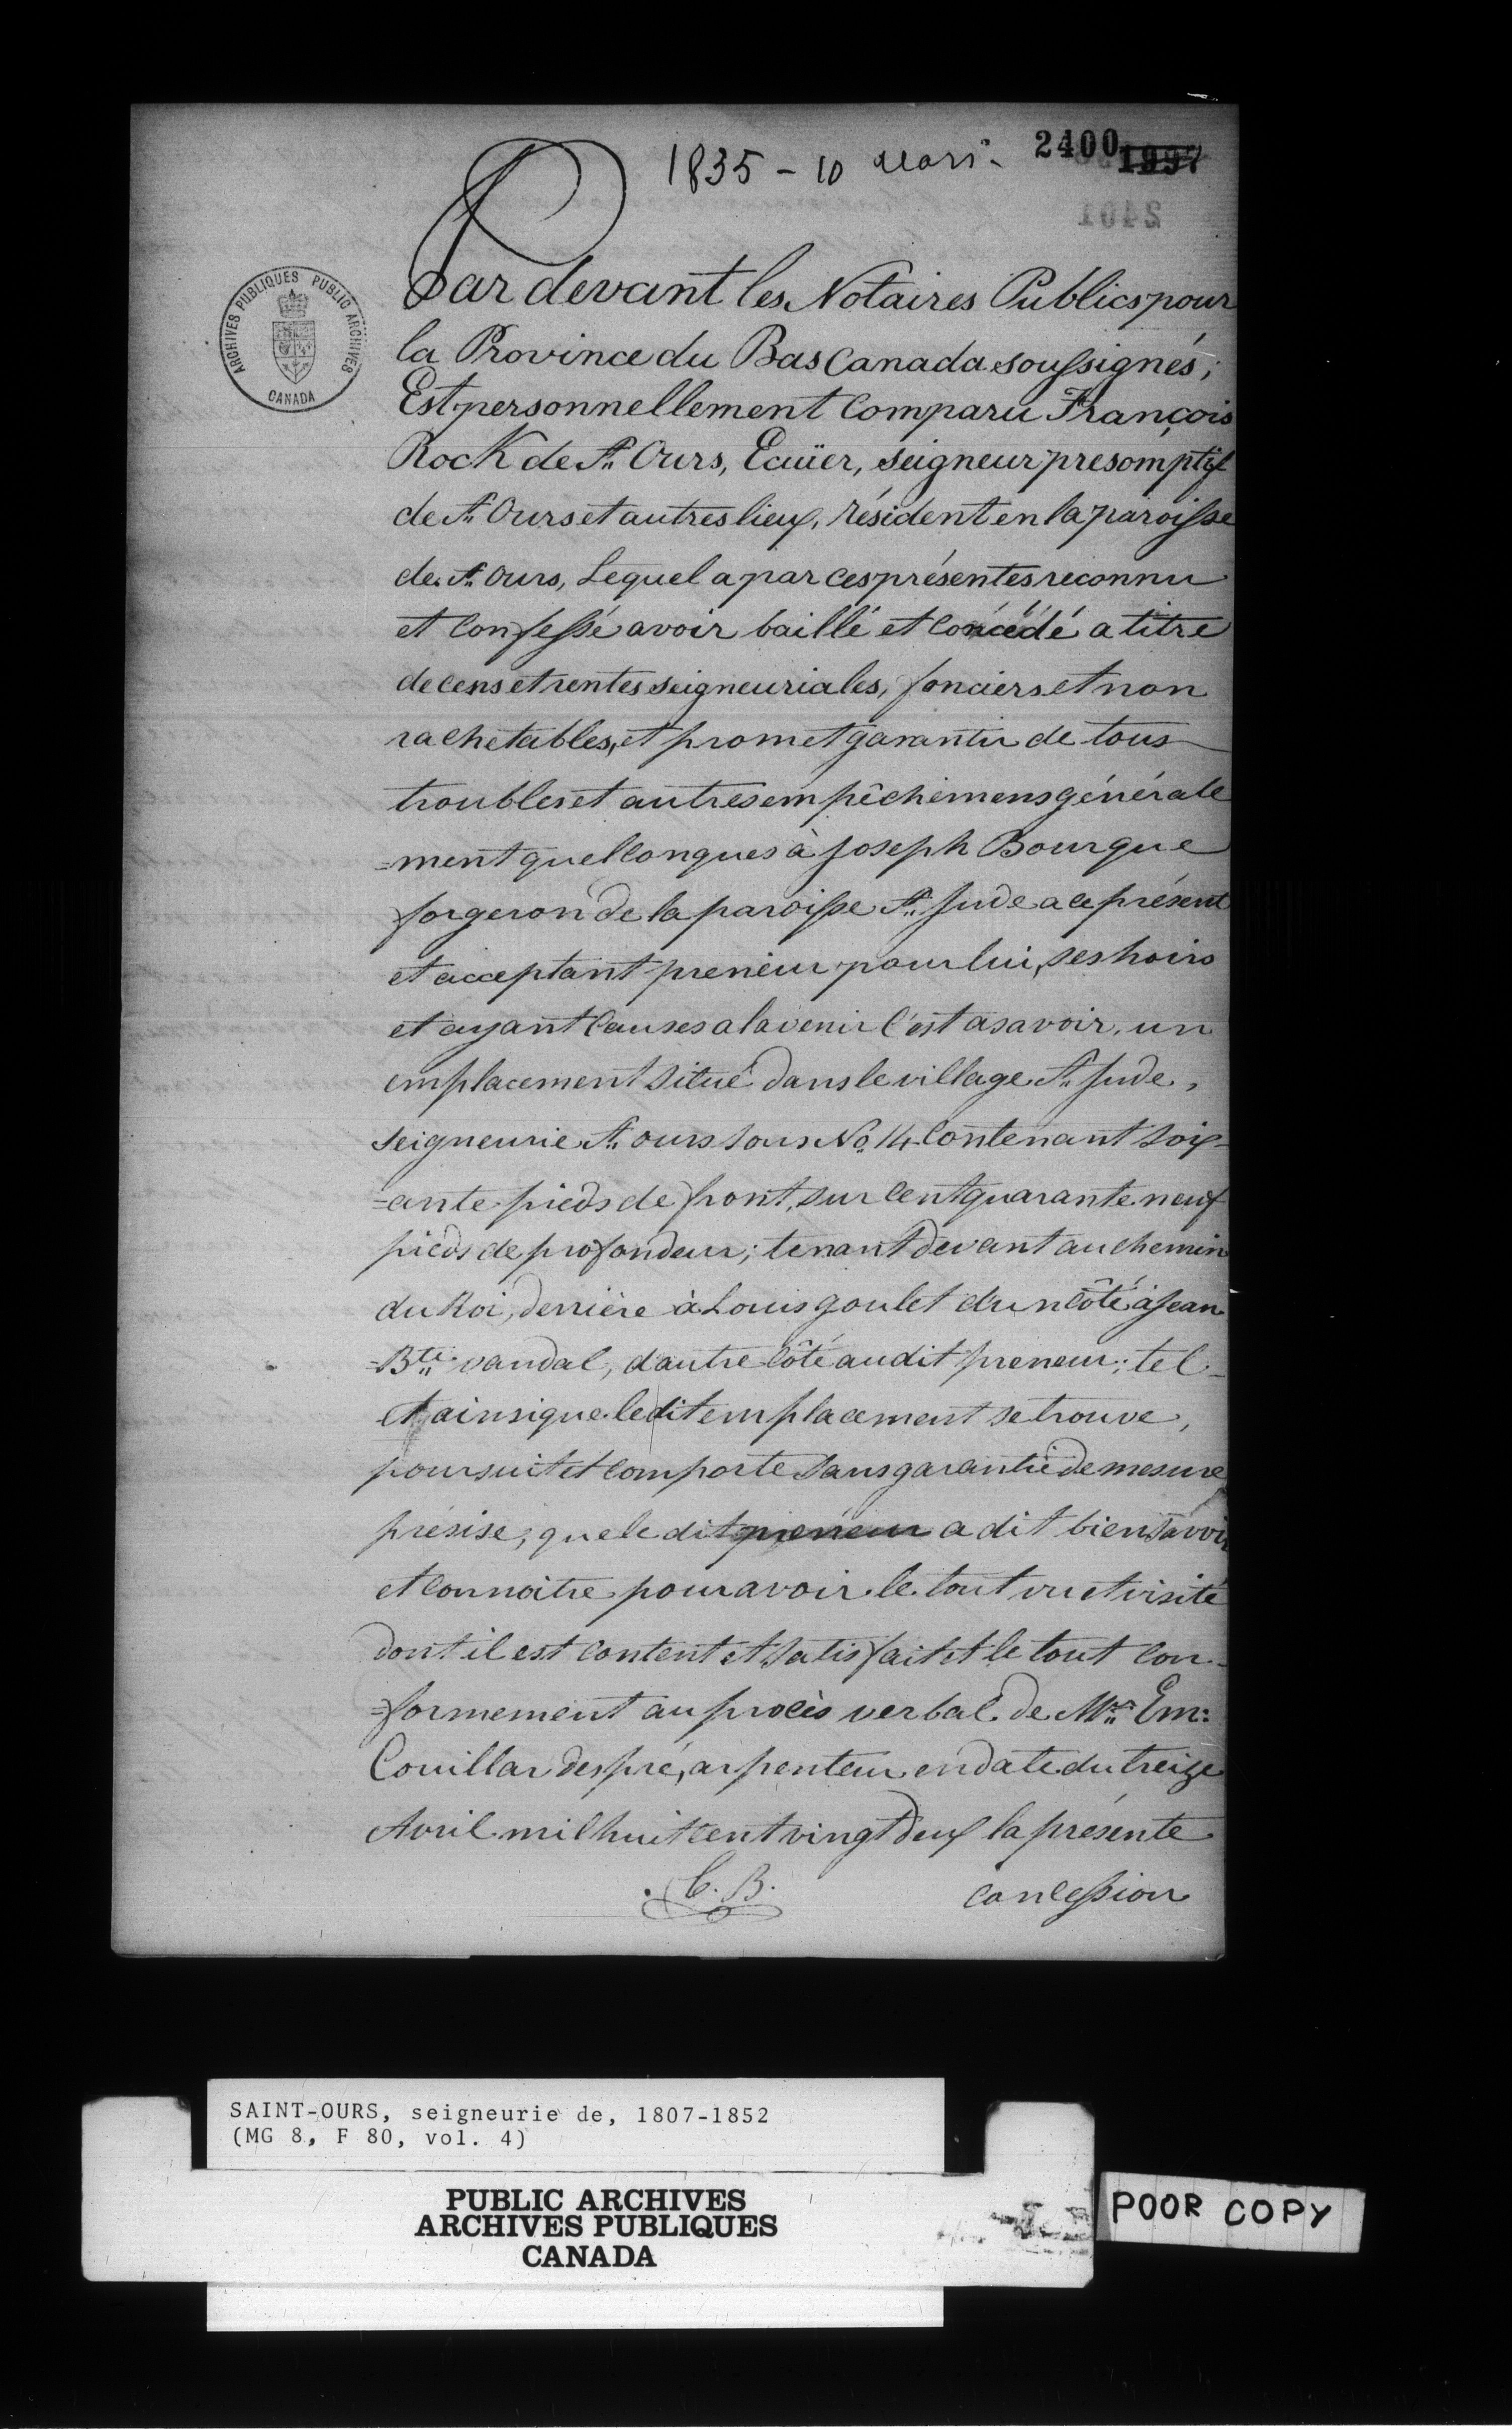 1835 - 10 Mars -
2400 1997
2401
ARCHIVES PUBLIQUES PUBLIC ARCHIVES
CANADA
Par devant les Notaires Publics pour
la Province du Bas Canada soussignés;
Est personnellement Comparu François
Rock de St. Ours, Ecuïer, seigneur presomptif
de St. Ours et autres lieux, résident en la paroisse
de St. Ours, Lequel a par ces présentes reconnu
et confessé avoir baillé et concédé a titre
de cens et rentes seigneuriales, fonciers et non
rachetables, et promet garantir de tous
troubles et autres empêchemens générale
=ment quelconques à Joseph Bourque
forgeron de la paroisse St. Jude a ce présent
et acceptant preneur pour lui, ses hoirs
et ayant causes a lavenir C'est asavoir, un
emplacement situé dans le village St. Jude,
seigneurie St. ours sous No. 14 Contenant soix-
=ante pieds de front, sur cent quarante neuf
pieds de profondeur; tenant devant au chemin
du Roi, derrière à Louis Goulet d'un côté à Jean
=Bte. vandal, d'autre côté audit preneur; tel-
et ainsi que ledit emplacement se trouve,
poursuit et comporte sans garantie de mesure
présise; que le dit preneur a dit bien savoir
et connoitre pour avoir le tout vu et visité
dont il est content et satisfait et le tout con-
=formement au procès verbal de Mr. Em:
Couillar despré, arpenteur en date du treize
Avril mil huit cent vingt deux la présente
C. B. concession
SAINT-OURS, seigneurie de, 1807-1852
(MG 8, F 80, vol. 4)
PUBLIC ARCHIVES
ARCHIVES PUBLIQUES
CANADA
POOR COPY